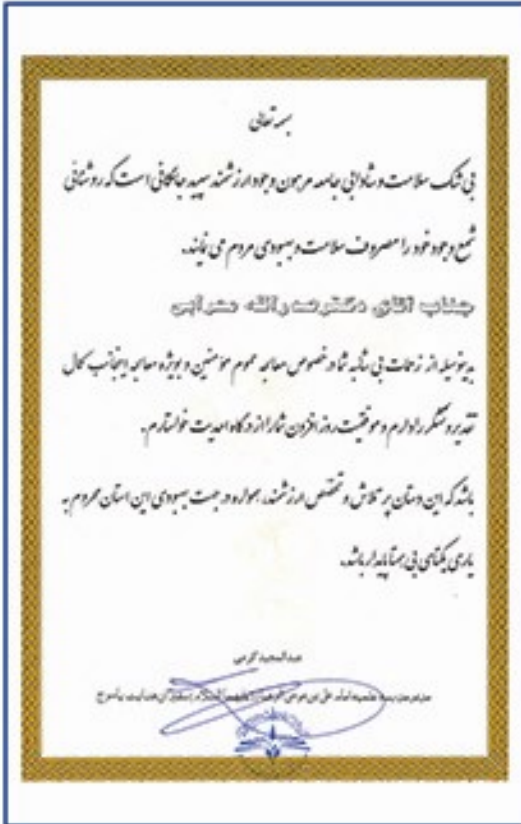 بسمه تعالی
بی شک سلامت و شادابی جامعه مرهون وجود ارزشمند سپید جامگانی است که روشنائی
شمع وجود خود را مصروف سلامت و بهبودی مردم می نمایند.
جناب آقای دکتر
بدینوسیله از زحمات بی شائبه شما در خصوص معالجه عموم مؤمنین و بویژه معالجه اینجانب کمال
تقدیر و تشکر را دارم و موفقیت روز افزون شما را از درگاه احدیت خواستارم.
باشد که این دستان پر تلاش و تخصص ارزشمند، همواره در جهت بهبودی این استان محروم به
یاری یکتای بی همتا پایدار باشد.
کرمی